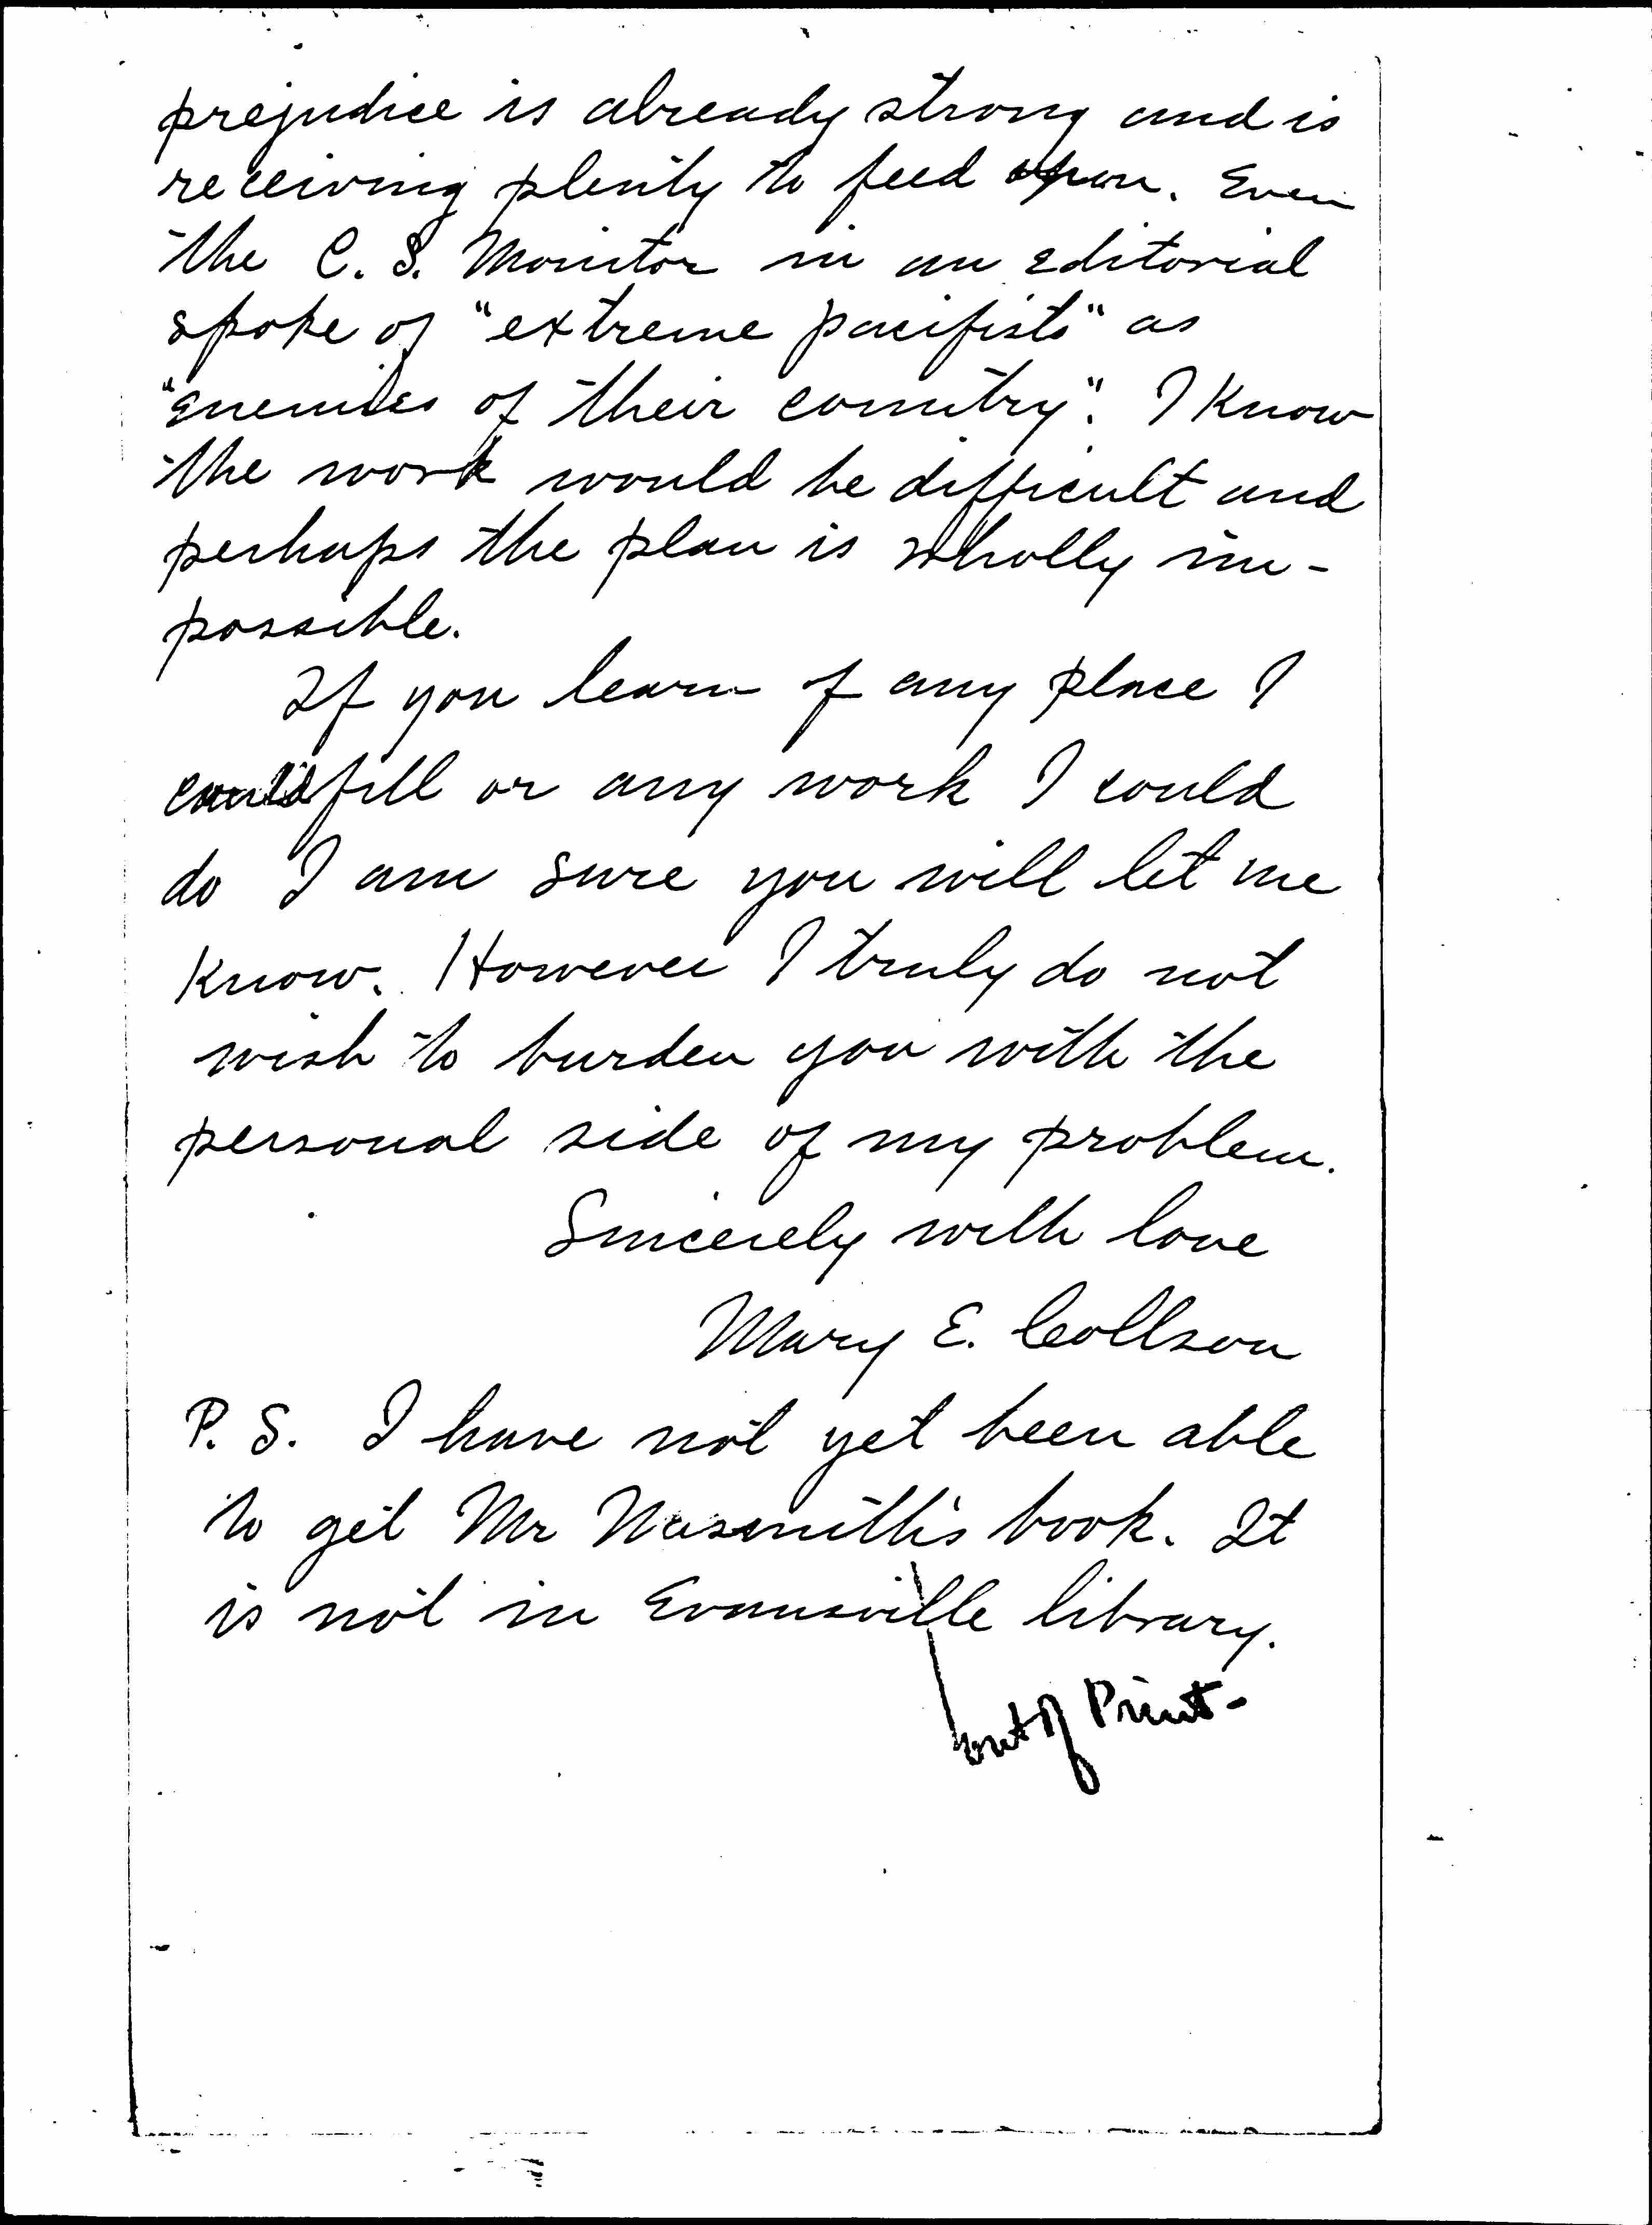 prejudice is already strong and is
receiving plenty to feed upon. Even
the C. S. Monitor in an editorial
spoke of "extreme pacifists" as
"enemies of their country". I know
the work would be difficult and
perhaps the plan is wholly im-
possible.
If you learn of any place I
could fill or any work I could
do I am sure you will let me
know. However I truly do not
wish to burden you with the
personal side of my problem.
Sincerely with love
Mary E. Collson
P. S. I have not yet been able
to get Mr Nasmith's book. It
is not in Evansville library.
out of Print-